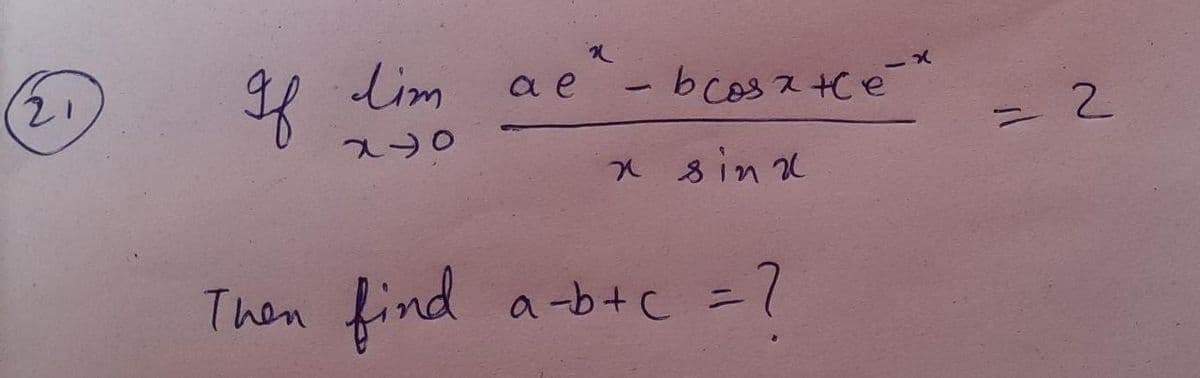 (21) If lim ae^x - bcosx+ce^-x = 2
x→0 x sinx
Then find a-b+c =?